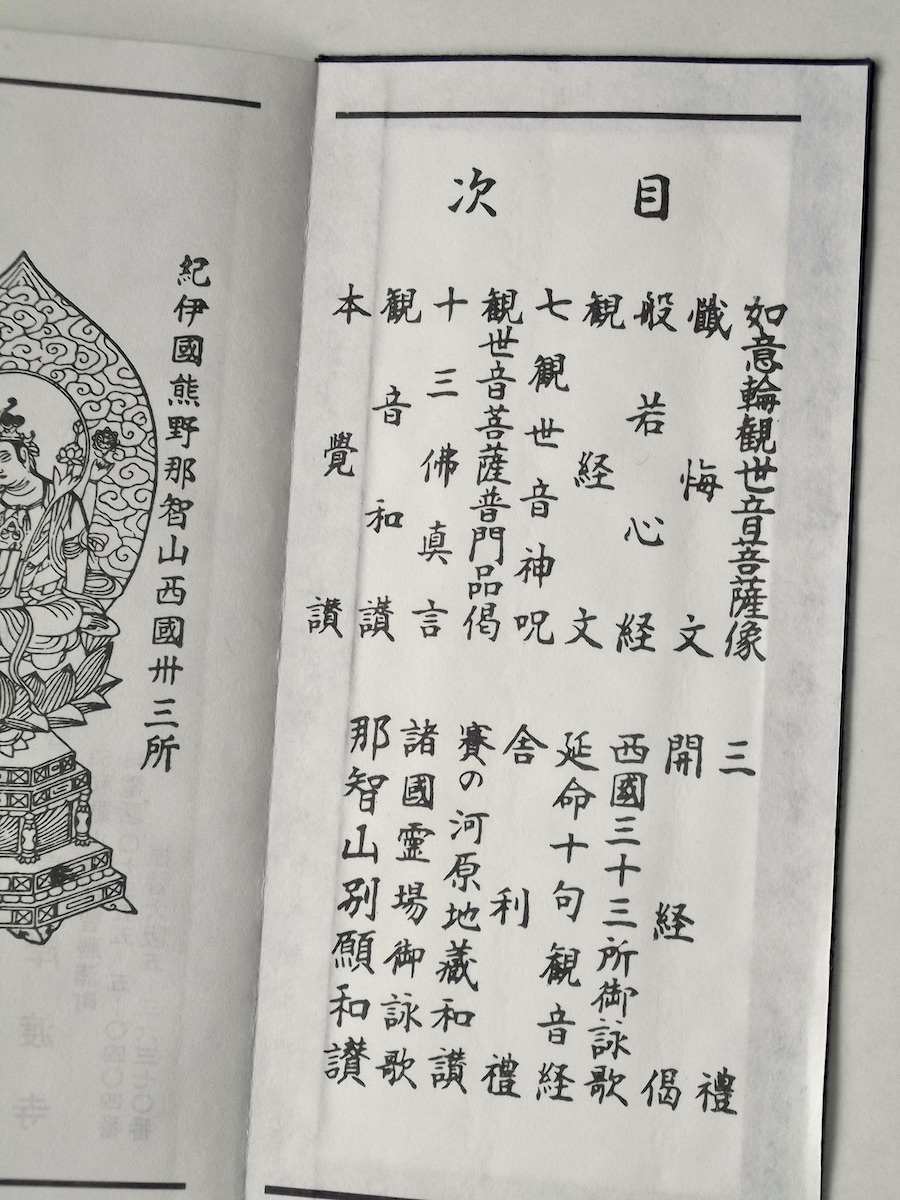 目次
如意輪観世音菩薩像
三禮
懺悔文
開経偈
般若心経
西國三十三所御詠歌
観経文
延命十句観音経
七観世音神呪
舎利禮
観世音菩薩普門品偈
賽の河原地蔵和讃
十三佛真言
諸國霊場御詠歌
観音和讃
那智山別願和讃
本覺讃
紀伊國熊野那智山西國卅三所